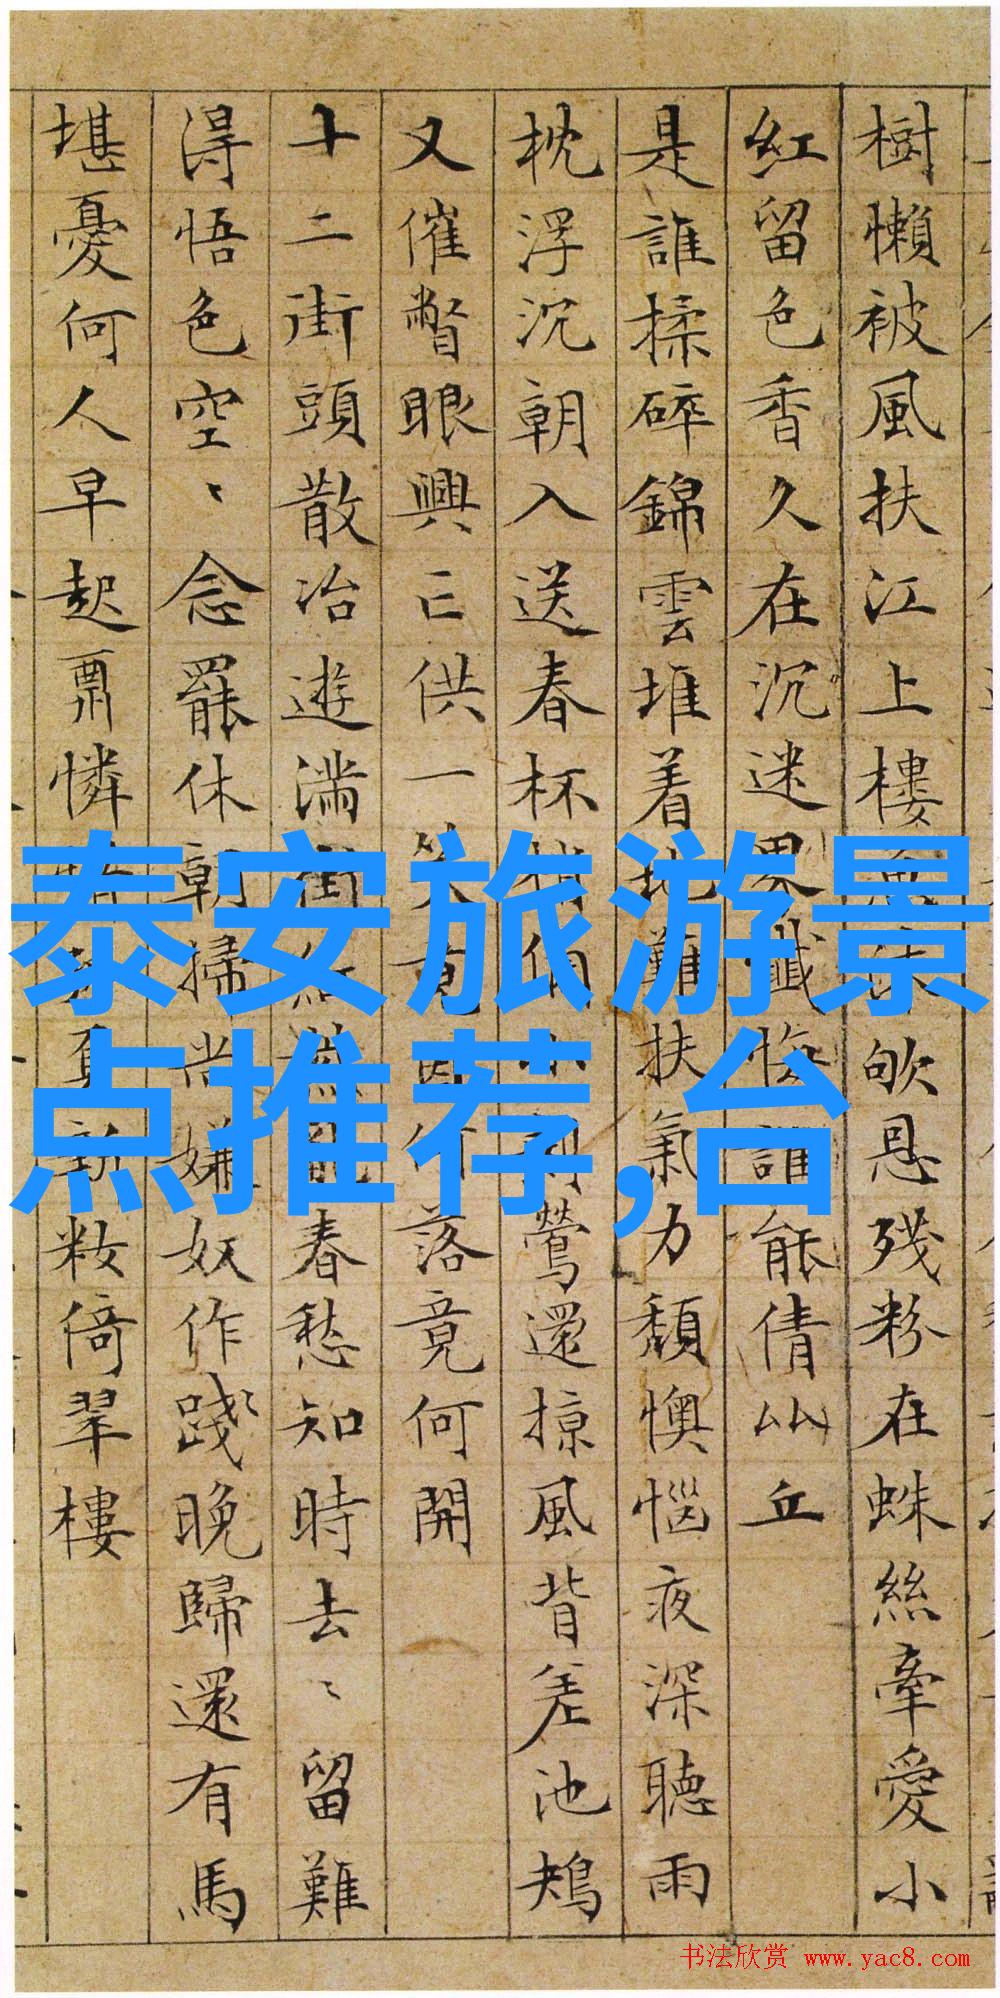 樹懶被風扶江上樓恩殘粉在蛛絲牽愛小
紅留色香久在沉迷界懺悔誰能倩比丘
是誰揉碎錦雲堆着地難扶氣力頹懊惱夜深聽雨
枕浮沉朝入送春杯鶯還掠風背差池鴂
又催瞥眼興亡供一笑落竟何開
十二街頭散冶遊滿街春愁知時去〻留難
得悟色空〻念罷休朝掃嫌奴作踐晚歸還有馬
堪憂何人早起肅憐粧倚翠樓
泰安旅游景
点推荐,台
书法欣赏 www.yac8.com